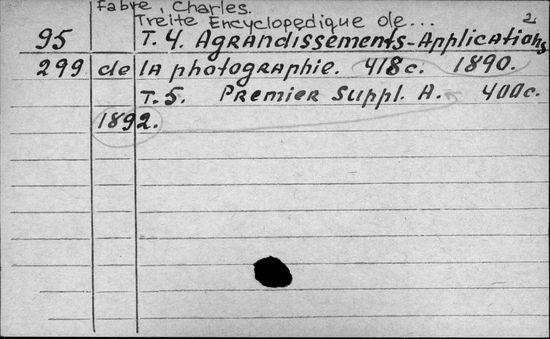 Fabre, Charles.
Treite Encyclopedique de... 2.
95 T. 4. Agrandissements-Applications
299 de la photographie. 418c. 1890.
T. 5. Premier Suppl. A. 400c.
1892.